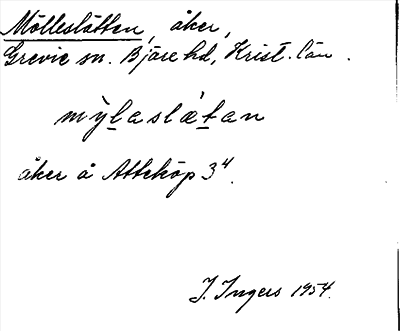 Mölleslätten, åker,
Grevie sn. Bjäre hd, Krist. län.
mỳḻaslǽṯan
åker å Atteköp 3⁴.
J. Ingers 1954.